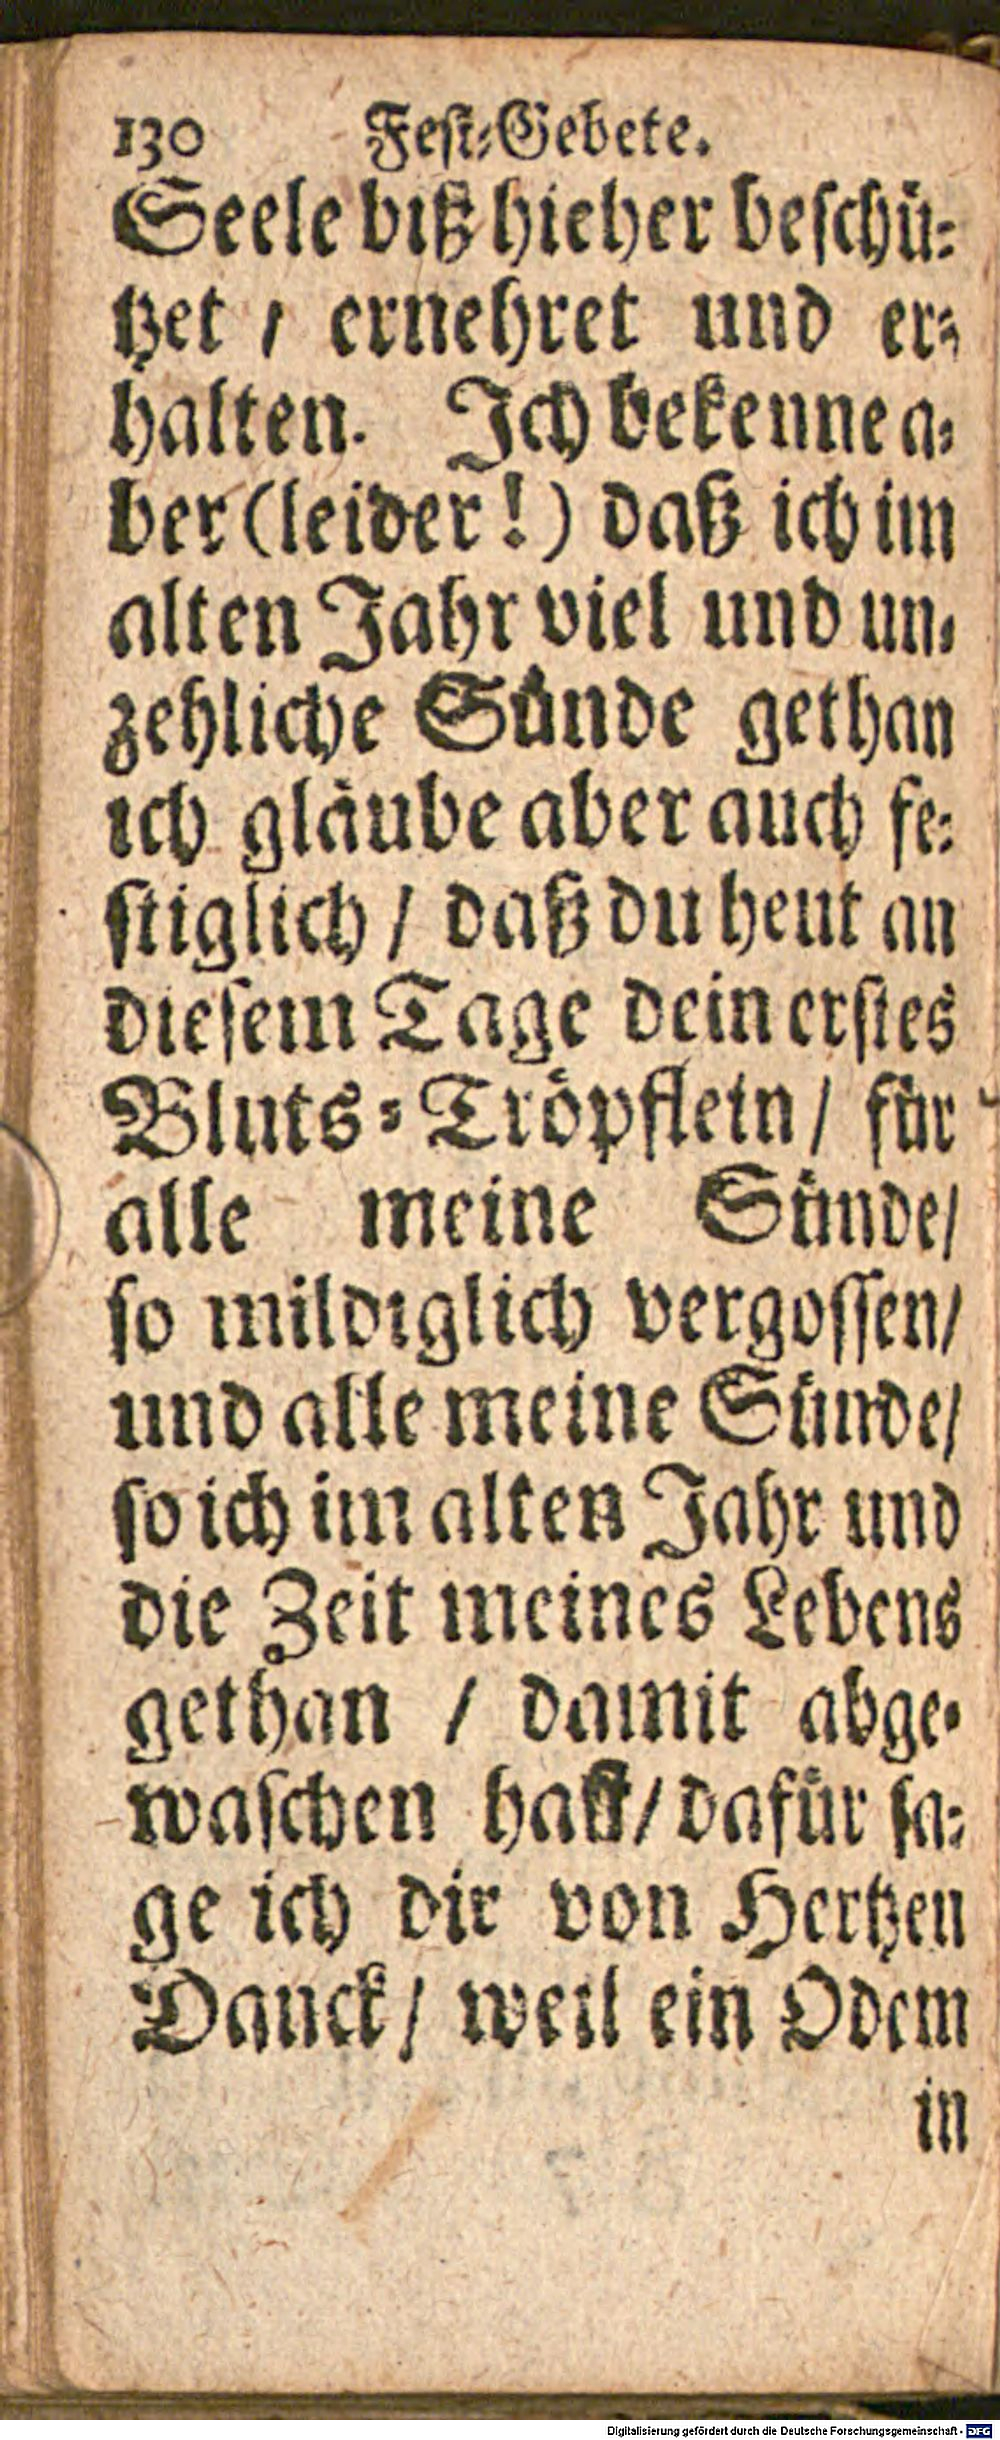 130 Fest-Gebete.
Seele biß hieher beschü-
tzet / ernehret und er-
halten. Ich bekenne a-
ber (leider!) daß ich im
alten Jahr viel und un-
zehliche Sünde gethan
ich gläube aber auch fe-
stiglich / daß du heut an
diesem Tage dein erstes
Bluts-Tröpflein / für
alle meine Sünde /
so mildiglich vergossen /
und alle meine Sünde /
so ich im alten Jahr und
die Zeit meines Lebens
gethan / damit abge-
waschen hast / dafür sa-
ge ich dir von Hertzen
Danck / weil ein Odem
in
Digitalisierung gefördert durch die Deutsche Forschungsgemeinschaft - DFG